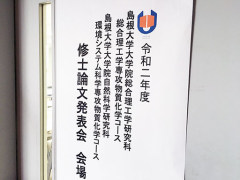 令和二年度
島根大学大学院総合理工学研究科
総合理工学専攻物質化学コース
島根大学大学院自然科学研究科
環境システム科学専攻物質化学コース
修士論文発表会 会場